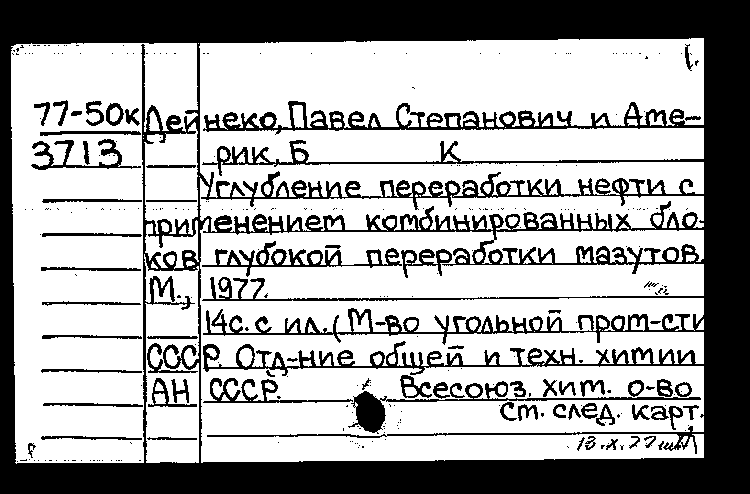 77-50к Дейнеко, Павел Степанович и Аме-
3713 рик, Б К
Углубление переработки нефти с
применением комбинированных бло-
ков глубокой переработки мазутов.
М., 1977.
14с. с ил. (М-во угольной пром-сти
СССР. Отд-ние общей и техн. химии
АН СССР. Всесоюз. хим. о-во
ст. след. карт.
13.X.77